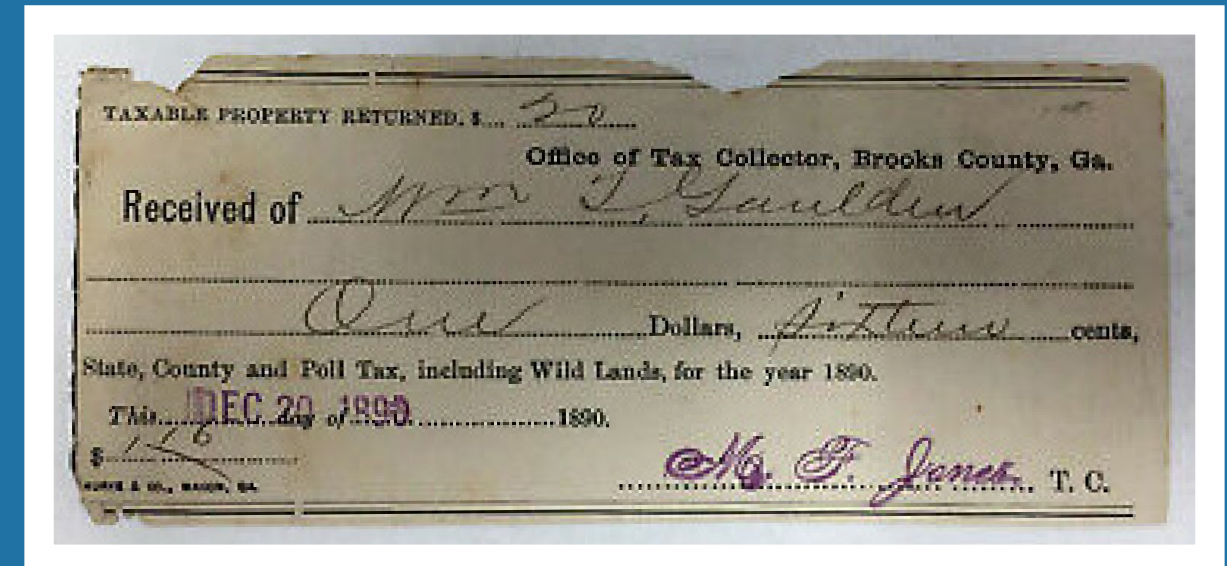 TAXABLE PROPERTY RETURNED. $.... 20
Office of Tax Collector, Brooks County, Ga.
Received of Wm T. Gaulden
One Dollars, sixteen cents,
State, County and Poll Tax, including Wild Lands, for the year 1890.
This DEC 20 day of 1890 1890.
$ 1 16
M. F. Jones. T. C.
BURKE & CO., MACON, GA.